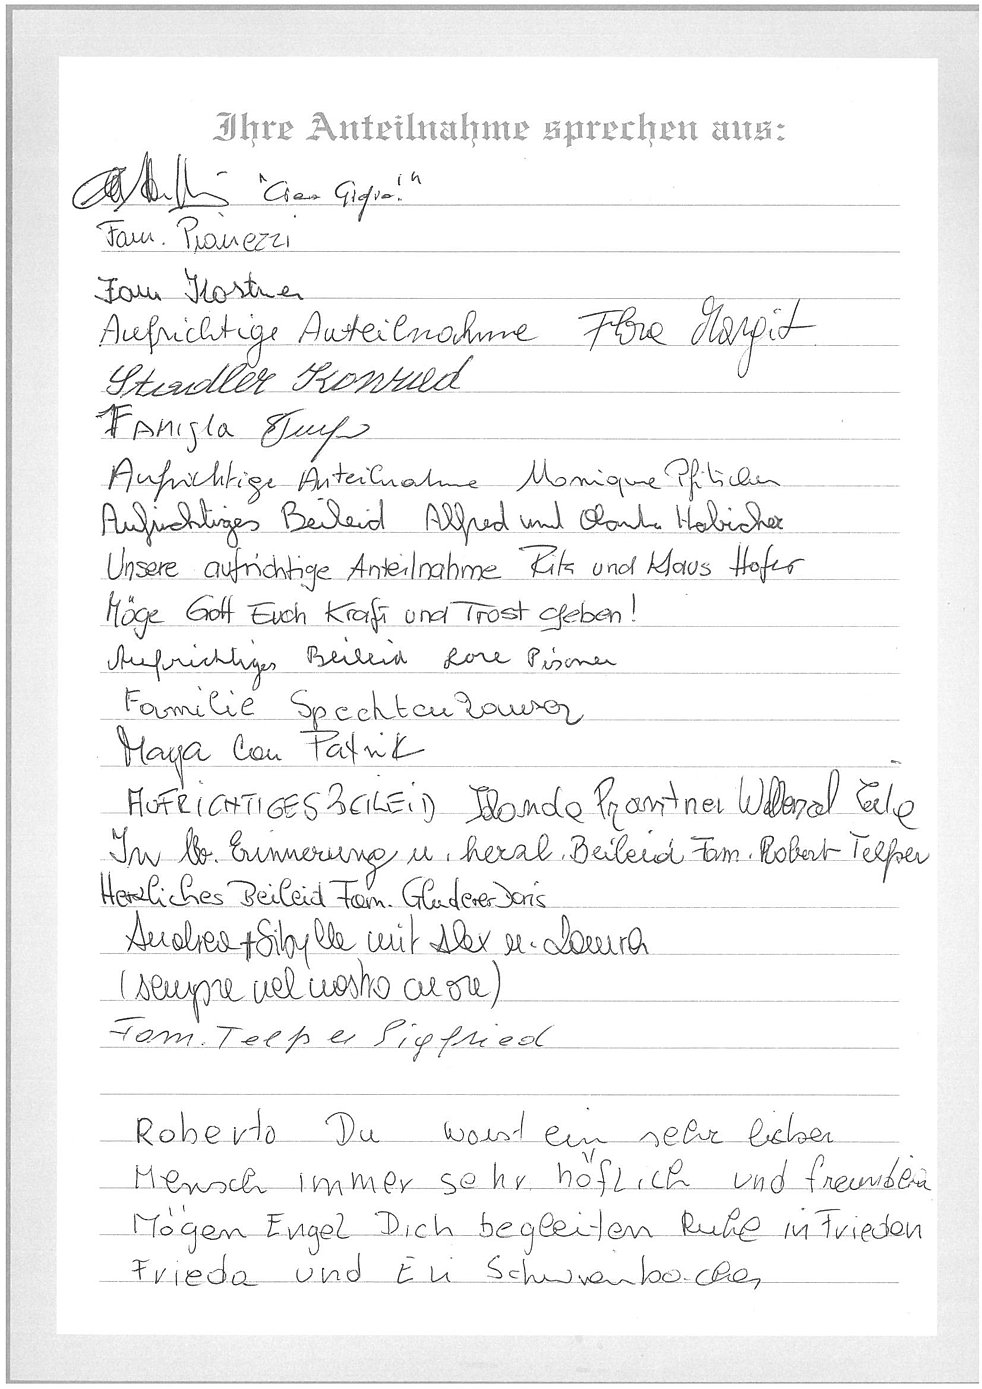 Ihre Anteilnahme sprechen aus:
"Ciao Gigio!"
Fam. Pianezzi
Fam Kostner
Aufrichtige Anteilnahme Flora Margit
Stadler Konrad
Famigla
Aufrichtige Anteilnahme Monique Pfitscher
Aufrichtiges Beileid Alfred und Habicher
Unsere aufrichtige Anteilnahme Rita und Klaus Hofer
Möge Gott Euch Kraft und Trost geben!
Aufrichtiges Beileid Lore Pisoner
Familie Spechtenhauser
Maya con Patrik
AUFRICHTIGES BEILEID Prantner
In lb. Erinnerung u. herzl. Beileid Fam. Robert Telser
Herzliches Beileid Fam. Gluderer Doris
Andrea + Sibylle mit Alex u. Laura
(sempre nel nostro cuore)
Fam. Telser Sigfried
Roberto Du warst ein sehr lieber
Mensch immer sehr höflich und freundlich
Mögen Engel Dich begleiten Ruhe in Frieden
Frieda und Eli Schwienbacher